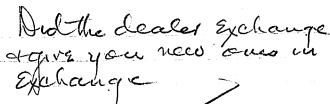 Did the dealer exchange
& give you new ones in
Exchange